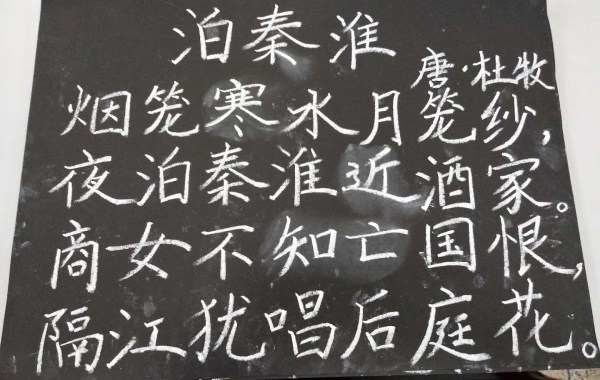 泊秦淮
唐·杜牧
烟笼寒水月笼纱，
夜泊秦淮近酒家。
商女不知亡国恨，
隔江犹唱后庭花。